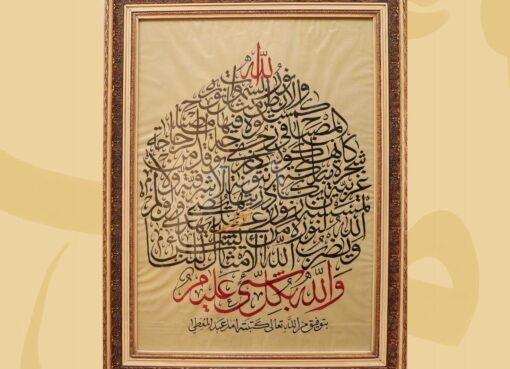 الله
نور السموات
والارض مثل نوره
كمشكوة فيها مصباح
المصباح في زجاجة الزجاجة
كأنها كوكب دري يوقد من
شجرة مباركة زيتونة لا شرقية ولا
غربية يكاد زيتها يضئ ولو لم
تمسسه نار نور على نور يهدي
الله لنوره من يشاء
ويضرب الله الأمثال للناس
والله بكل شئ عليم
بتوفيق من الله تعالى كتبته عبد المعطي